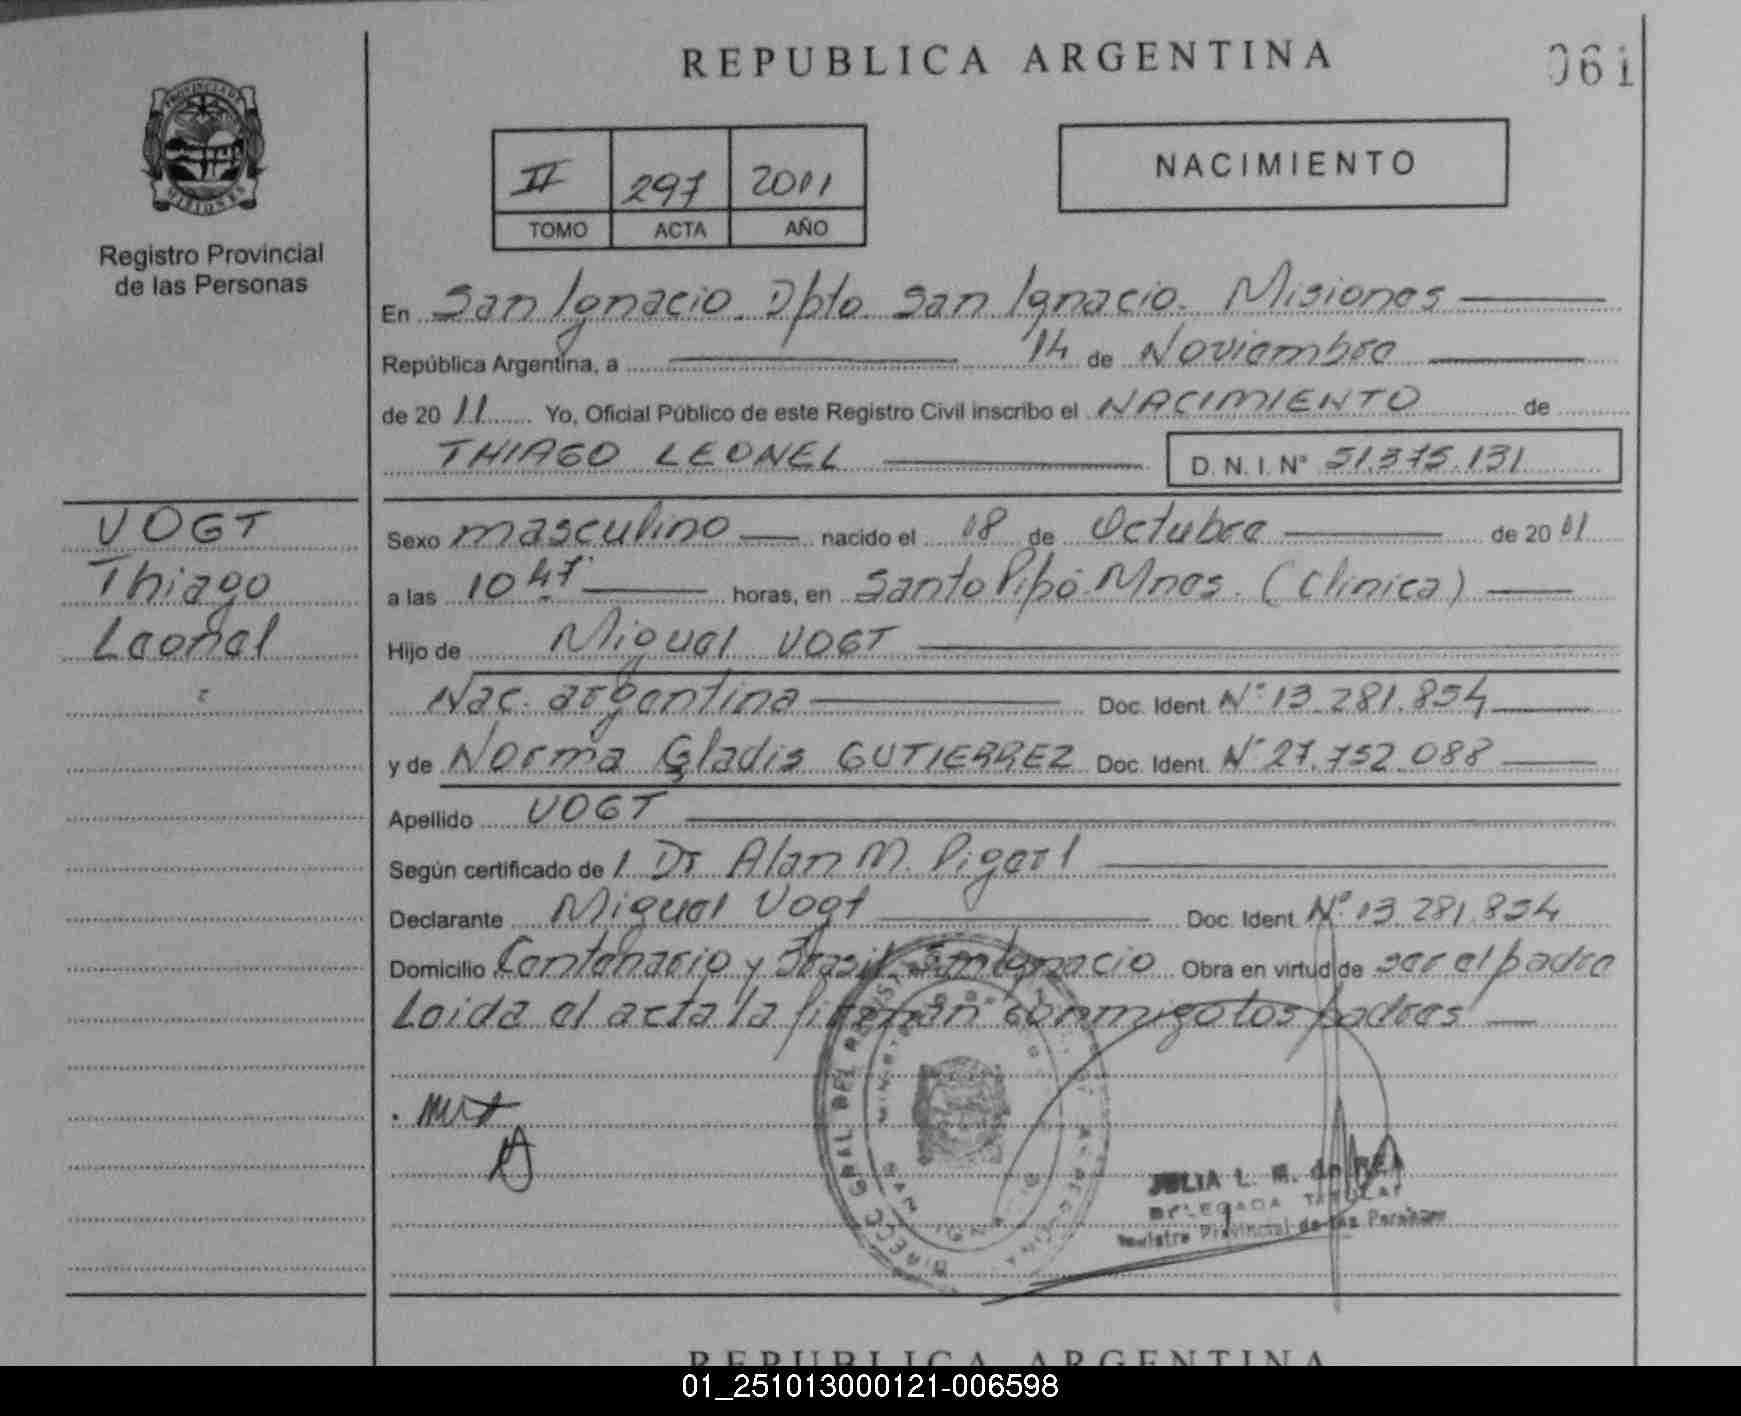 REPUBLICA ARGENTINA
061
PROVINCIA DE
MISIONES
Registro Provincial
de las Personas
II 297 2011
TOMO ACTA AÑO
NACIMIENTO
En San Ignacio. Dpto. San Ignacio. Misiones
República Argentina, a 14 de Noviembre
de 20 11 Yo, Oficial Público de este Registro Civil inscribo el NACIMIENTO de
THIAGO LEONEL D. N. I. N° 51.375.131
VOGT
Thiago
Leonel
Sexo masculino nacido el 18 de Octubre de 20 11
a las 10 47 horas, en Santo Pipó. Mnes. (Clinica)
Hijo de Miguel VOGT
Nac. argentina Doc. Ident. N° 13.281.854
y de Norma Gladis GUTIERREZ Doc. Ident. N° 27.752.088
Apellido VOGT
Según certificado de Dr Alan M.
Declarante Miguel Vogt Doc. Ident. N° 13.281.854
Domicilio Centenario y Brasil. San Ignacio Obra en virtud de ser el padre
Leida el acta la firman conmigo los padres
DIRECC GRAL DEL
SAN IGNACIO
JULIA L. M. de REA
DELEGADA TITULAR
Registro Provincial de las Personas
REPUBLICA ARGENTINA
01_251013000121-006598